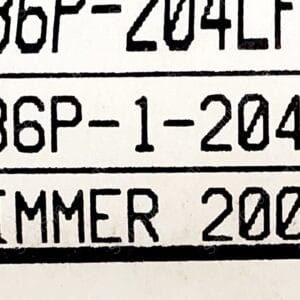 86P-204LF
36P-1-204
IMMER 200